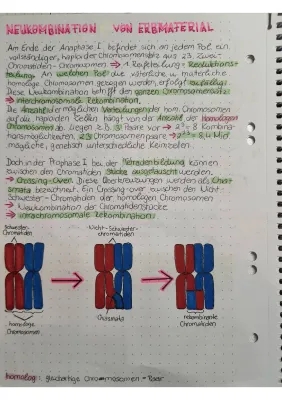 NEUKOMBINATION VON ERBMATERIAL
Am Ende der Anaphase I befindet sich an jedem Pol ein
vollständiger, haploider Chromosomensatz aus 23 Zwei-
Chromatiden-Chromosomen → 1. Reifeteilung = Reduktions-
teilung. An welchen Pol die väterliche u. mütterliche
homologe Chromosomen gezogen werden, erfolgt zufällig.
Diese Neukombination betrifft den ganzen Chromosomensatz
→ interchromosomale Rekombination.
Die Anzahl der möglichen Verteilungen der hom. Chromosomen
auf die haploiden Zellen hängt von der Anzahl der homologen
Chromosomen ab. Liegen z.B. 3 Paare vor → 2³ = 8 Kombina-
tionsmöglichkeiten, 23 Chromosomenpaare → 2²³ = 8,4 Mio.
mögliche, genetisch unterschiedliche Keimzellen.
Doch in der Prophase I bei der Tetradenbildung können
zwischen den Chromatiden Stücke ausgetauscht werden.
→ Crossing-Over. Diese Überkreuzungen werden als Chias-
mata bezeichnet. Ein Crossing-over zwischen den Nicht-
Schwester-Chromatiden der homologen Chromosomen
→ Neukombination der Chromatidenstücke
→ intrachromosomale Rekombination.
Schwester-
Chromatiden
Nicht-Schwester-
chromatiden
homologe
Chromosomen
Chiasmata
rekombinante
Chromatiden
homolog: gleichartige Chromosomen-Paar